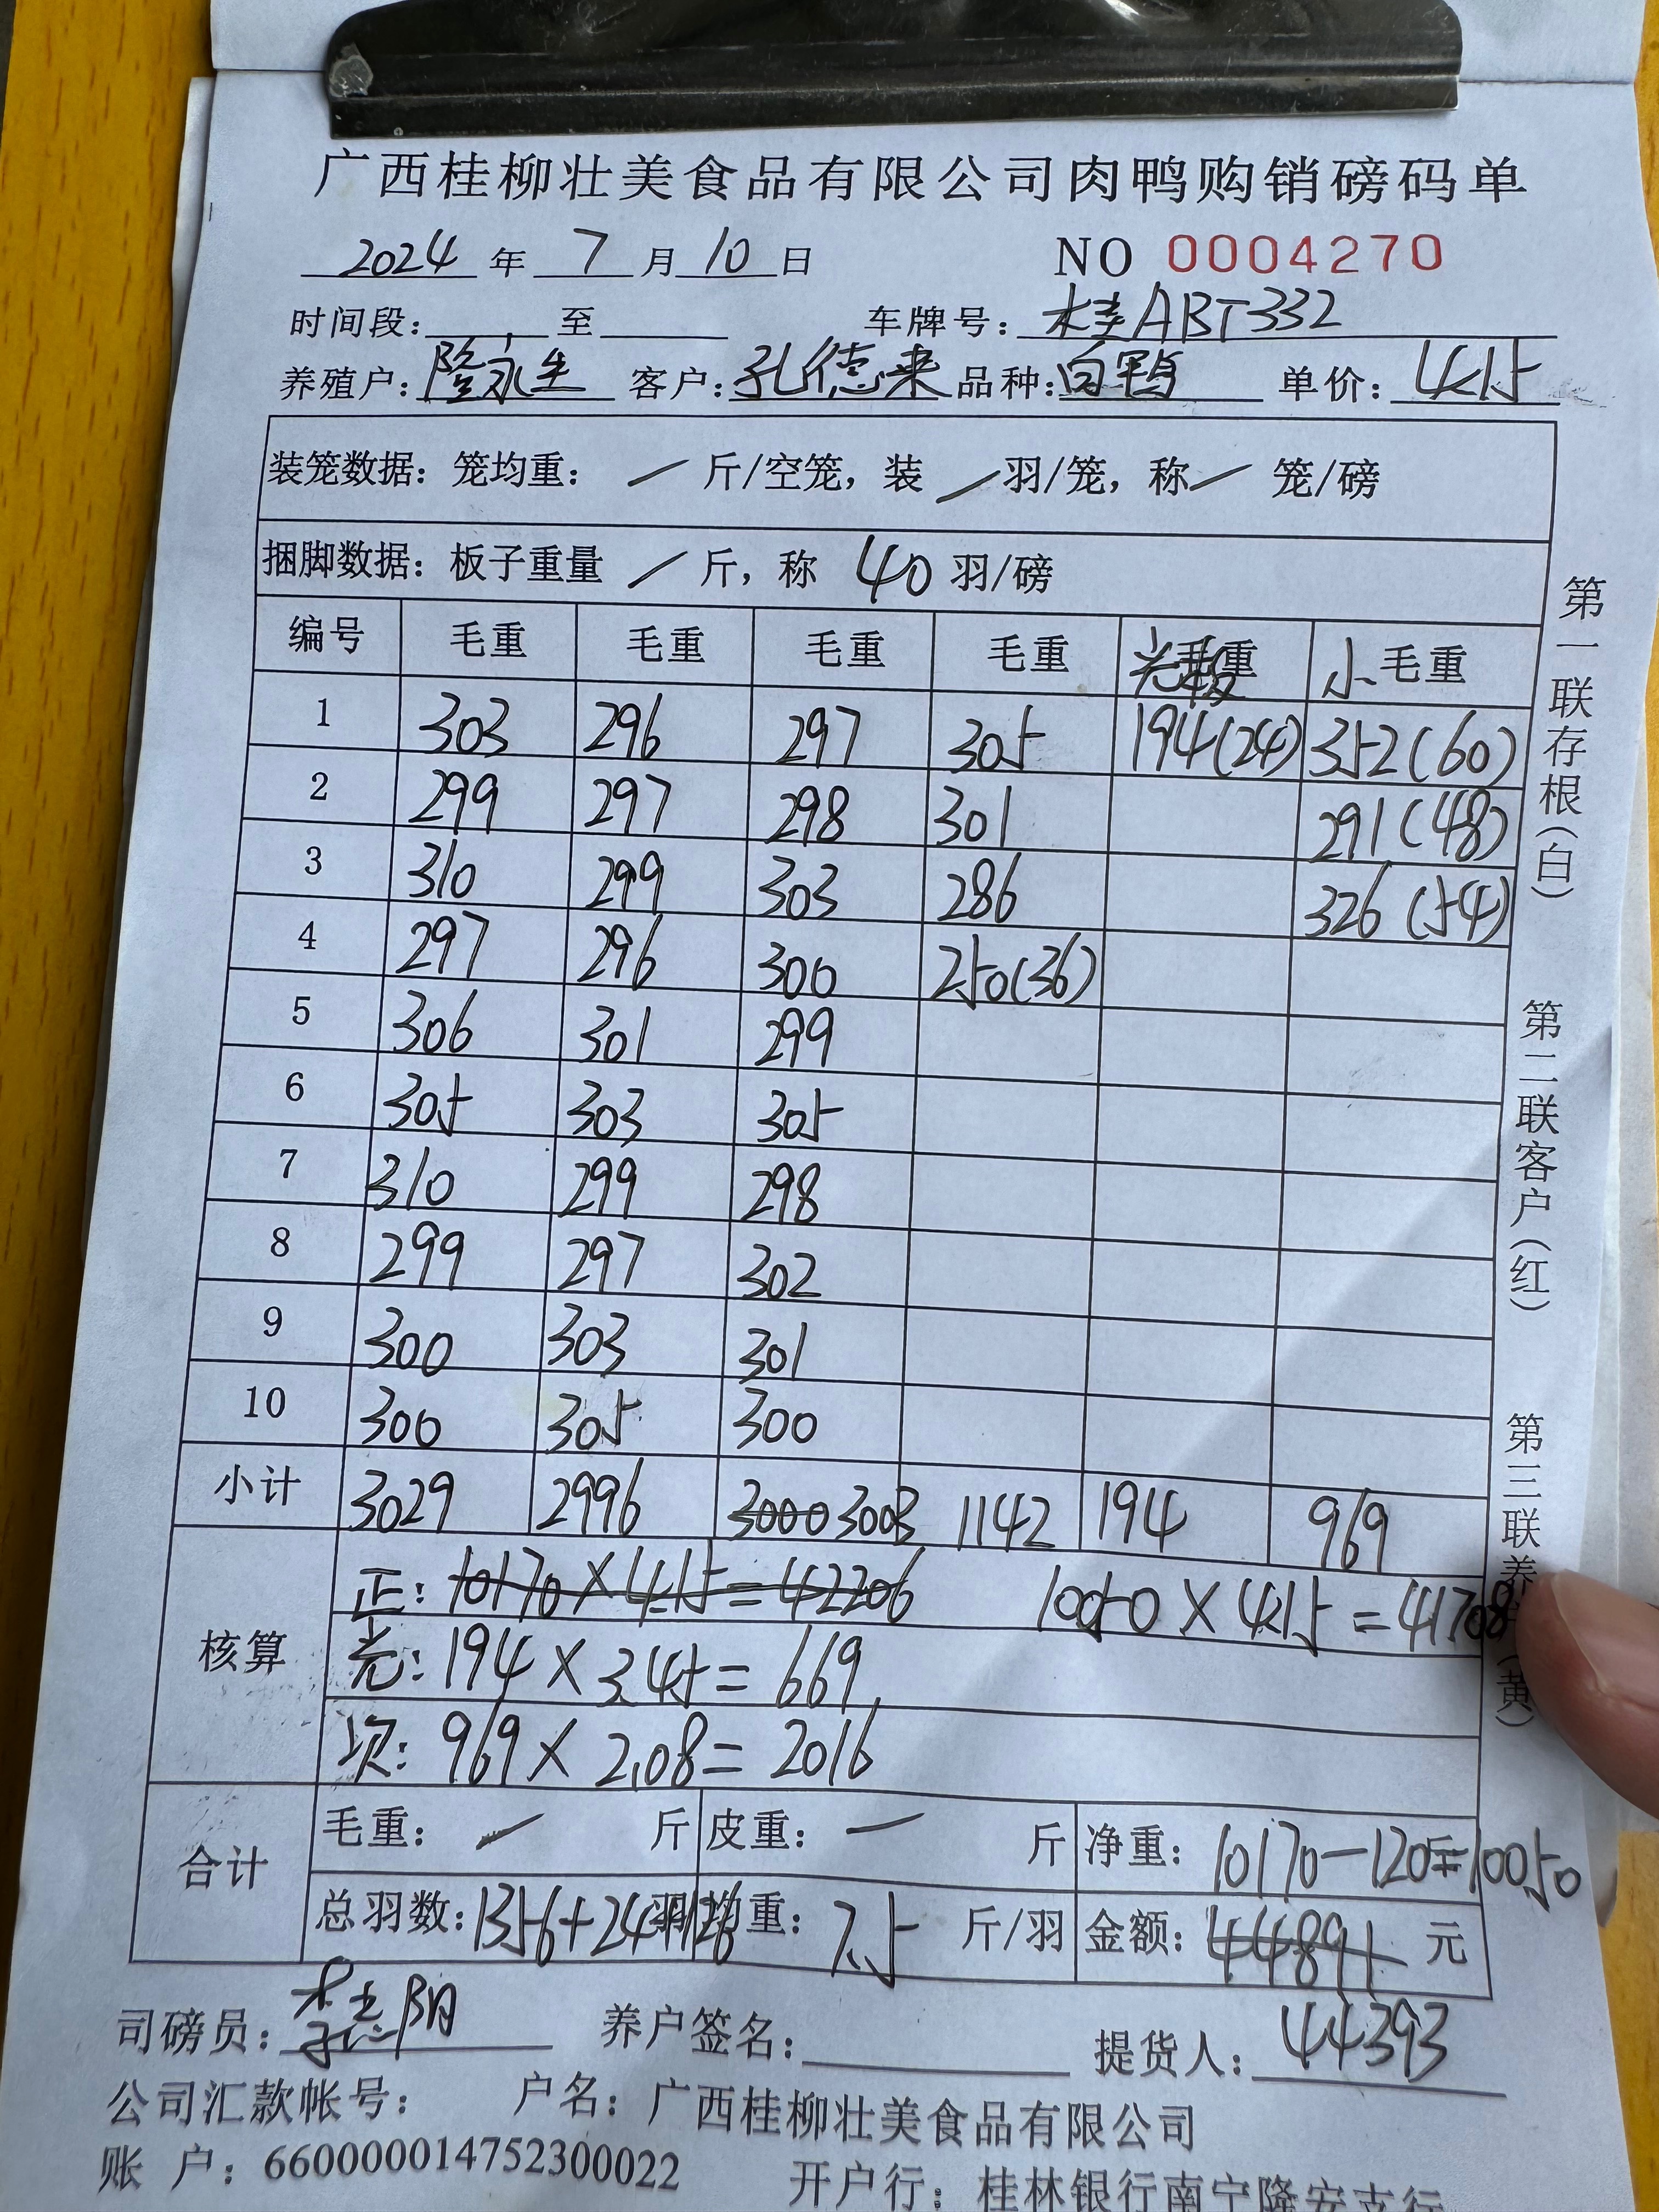 广西桂柳壮美食品有限公司肉鸭购销磅码单
2024 年 7 月 10 日 NO 0004270
时间段: 至 车牌号: 桂ABT332
养殖户: 隆永生 客户: 孔德来 品种: 白鸭 单价: 4.15
装笼数据: 笼均重: / 斤/空笼, 装 / 羽/笼, 称 / 笼/磅
捆脚数据: 板子重量 / 斤, 称 40 羽/磅
编号 毛重 毛重 毛重 毛重 光板 小毛重
1 303 296 297 305 194(24) 352(60)
2 299 297 298 301 291(48)
3 310 299 303 286 326(54)
4 297 296 300 250(36)
5 306 301 299
6 305 303 305
7 310 299 298
8 299 297 302
9 300 303 301
10 300 305 300
小计 3029 2996 3000 3003 1142 194 969
核算
正: 10170×4.15=42206 10050×4.15=41708
光: 194×3.45=669
次: 969×2.08=2016
合计
毛重: / 斤 皮重: — 斤 净重: 10170-120斤=10050
总羽数: 1356+24 羽 均重: 7.5 斤/羽 金额: 44891 元
司磅员: 养户签名: 提货人: 44393
公司汇款帐号: 户名: 广西桂柳壮美食品有限公司
账 户: 660000014752300022 开户行: 桂林银行南宁隆安支行
第一联存根(白)
第二联客户(红)
第三联养 (黄)